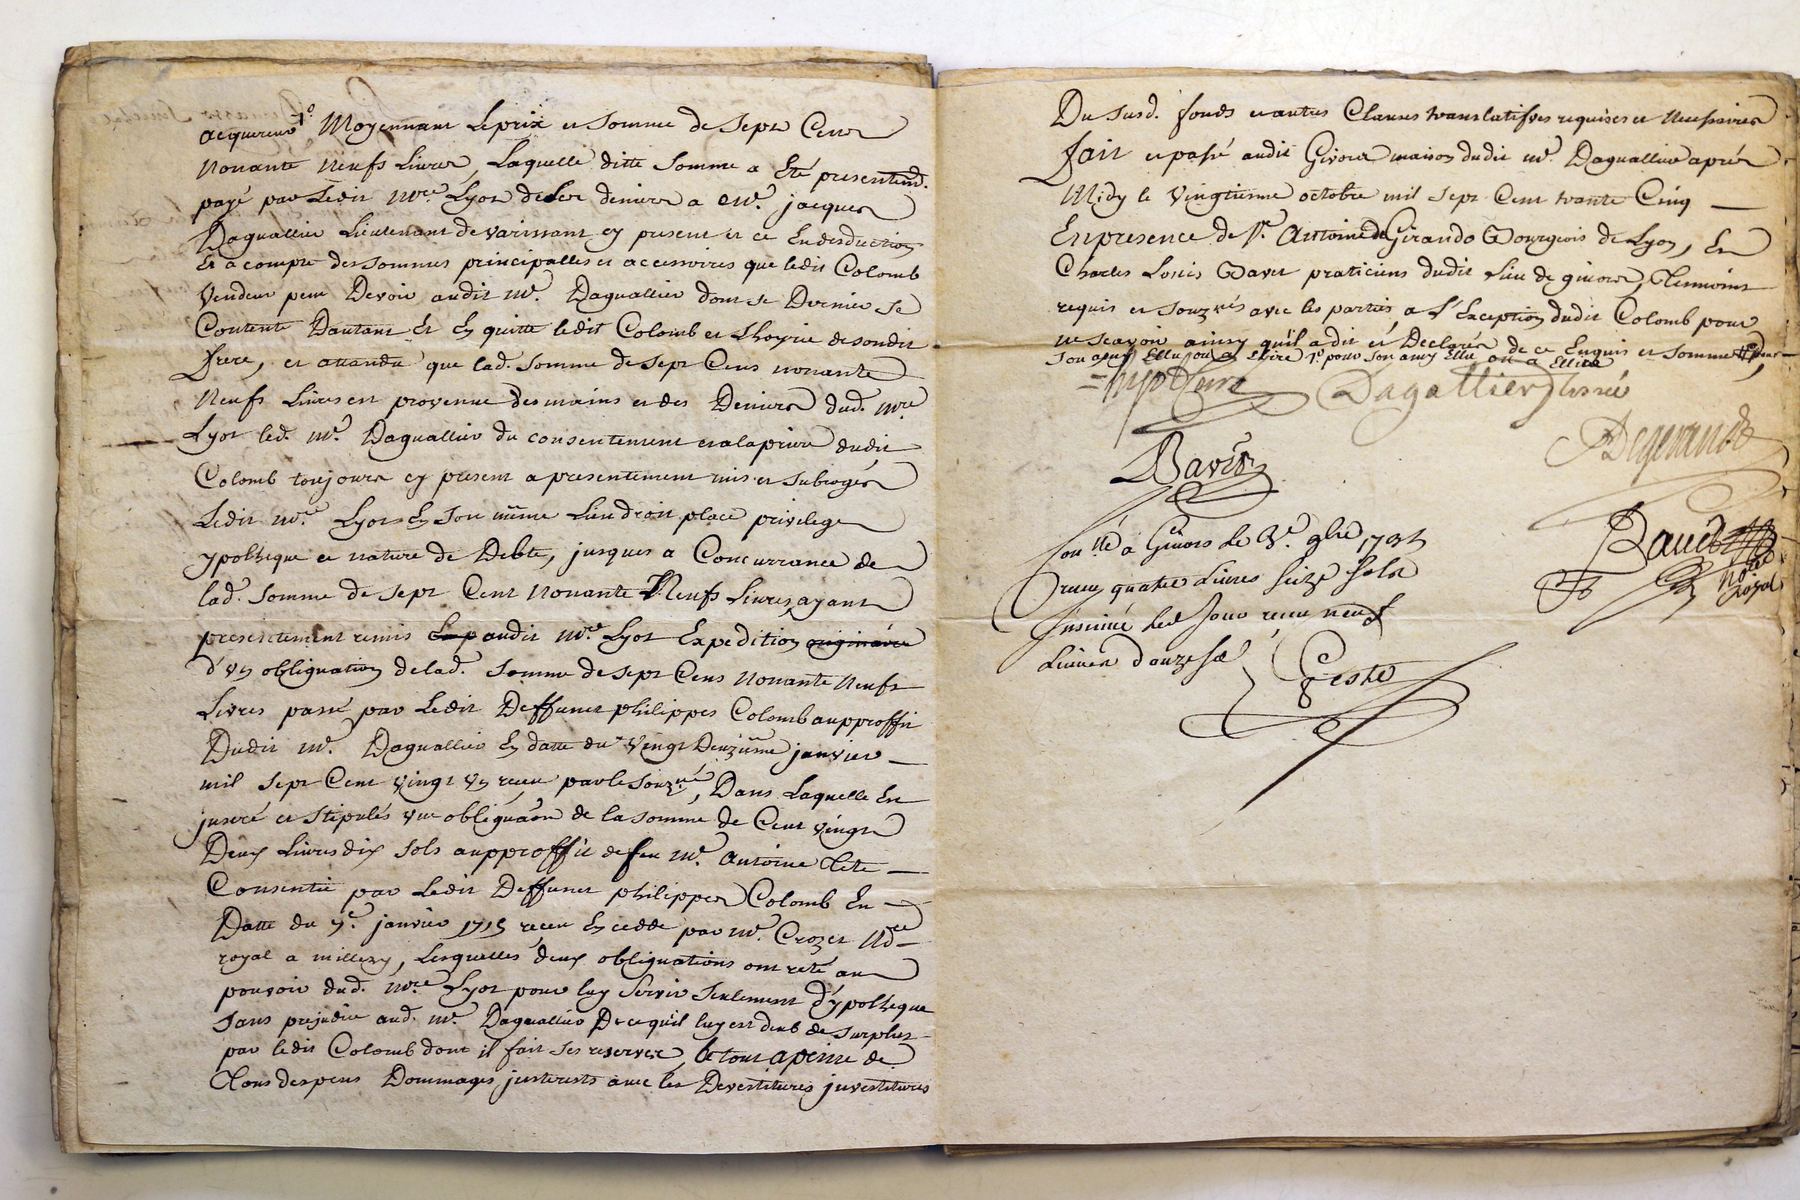 acquereur 1º Moyennant Leprix et Somme de Sept Cens
Nonante Neufs Livres, Laquelle ditte Somme a Eté presentemt.
payé par Ledit Mre. Lyot deses deniers a Me. jacques
Daguallier Lieutenant de varissant cy present et ce En desduction
Et a compte des sommes principalles et accessoires que ledit Colomb
Vendeur peut Devoir audit Me. Daguallier dont ce Dernier se
Contente Dautant Et En quitte ledit Colomb et Lhoyrie desondit
frere, et attandu que lad. Somme de Sept Cens nonante
Neufs Livres est provenue des mains et des Deniers dud. Mre
Lyot led. Me. Daguallier du consentement et a la priere dudit
Colomb toujours cy present a presentement mis et Subrogés
Ledit Mre. Lyot En Son même Lieu droit place privilege
ypotheque et nature de Debte, jusques a Concurrance de
lad. Somme de Sept Cent Nonante Neufs Livres, ayant
presentement remis audit Mre. Lyot Expedition originaire
d'vn obliguation de lad. Somme de Sept Cens Nonante Neufs
Livres passé par Ledit Deffunct philippes Colomb aupproffit
Dudit Me. Daguallier En datte du Vingt Deuzième janvier
mil Sept Cent Vingt Vn receu par le Souzné, Dans Laquelle Est
jnseré et Stipulés vne obliguaon de la Somme de Cent Vingt
Deux Livres dix Sols aupproffit de feu Me. Antoine Tete
Consentie par Ledit Deffunct philippes Colomb En
Datte du 7e. janvier 1715 receu En cedde par Me. Crozet Nore
royal a millery, Lesquelles deux obliguations ont reté au
pouvoir dud. Mre Lyot pour luy Servir Seulement d'ypotheque
Sans prejudice aud. Me. Daguallier De ce quil luy est deub de Surplus
par ledit Colomb dont il fait ses reserves, le tout a peine de
Tous despens Dommages jnterests avec les Devestitures jnvestitures
Du Susd. fonds et autres Clauses translatifves requises et Necessaires
fait et passé audit Givors maison dudit Me. Daguallier après
Midy le Vingtieme octobre mil Sept Cent trante Cinq
En presence de Sr. Antoine de Girando Bourgeois de Lyon, Et
Charles Louis Bavet praticiens dudit Lieu de givors, Temoins
requis et Souznés avec les parties a l'Exception dudit Colomb pour
ne scavoir ainsy quil a dit et Declarés de ce Enquis et Sommé
Son amy Ellu ou a Elire 1º pour Son amy Ellu ou a Ellire
Dagallier
Degerando
Bavet
Bavet
Nore
Royal
Con.llé a Givors Le 3e. 9bre 1735
receu quatre Livres Seize Sols
Insinué led Jour receu neuf
Livres douze Sols
Teste